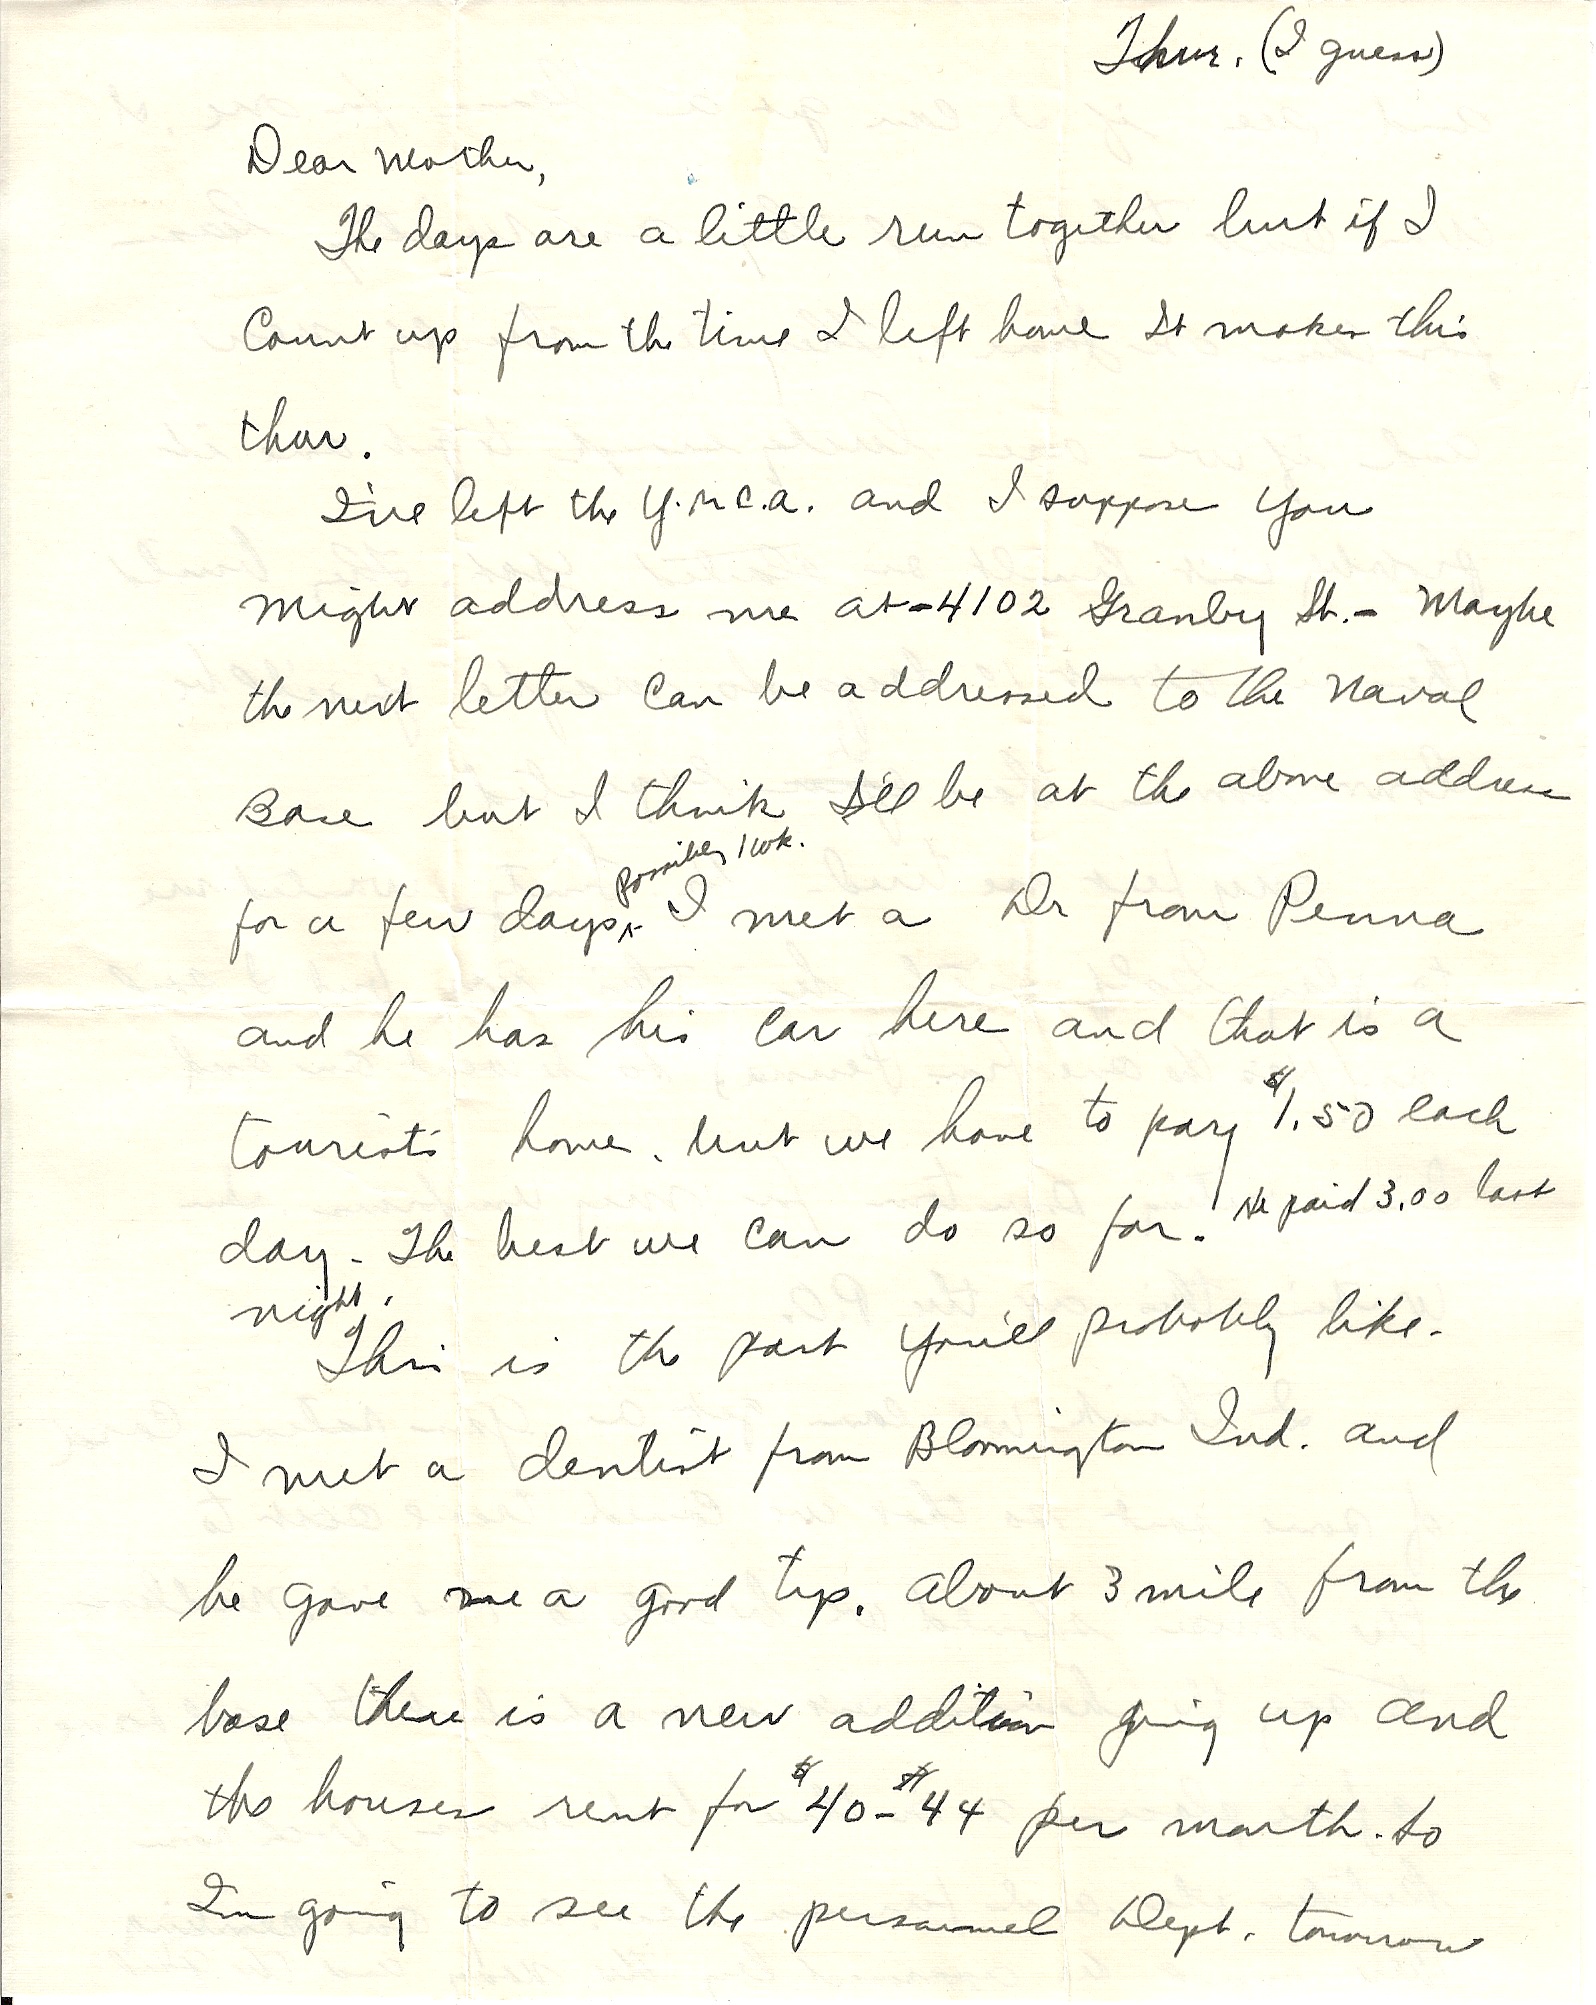 Thur. (I guess)
Dear Mother,
The days are a little run together but if I
Count up from the time I left home It makes this
thur.
I've left the Y.M.C.A. and I suppose you
might address me at - 4102 Granby St. - Maybe
the next letter can be addressed to the Naval
Base but I think I'll be at the above address
possibly 1 wk.
for a few days^. I met a Dr from Penna
and he has his car here and that is a
tourists home. but we have to pay $1.50 each
day - The best we can do so far. He paid 3.00 last
night.
This is the part you'll probably like.
I met a dentist from Bloomington Ind. and
he gave me a good tip. about 3 mile from the
base there is a new addition going up and
the houses rent for $40 - $44 per month. so
Im going to see the personnel Dept. tomorrow